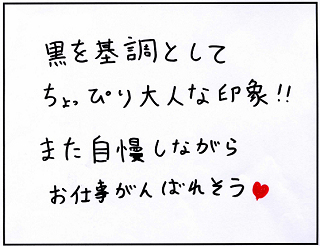 黒を基調として
ちょっぴり大人な印象!!
また自慢しながら
お仕事がんばれそう♥